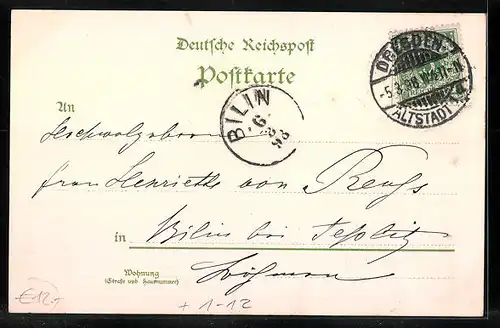 Deutsche Reichspost
Postkarte
DRESDEN
-5.3.98
ALTSTADT
BILIN
6
3
98
An
Hochwolgeboren
Frau Henriette von Reuss
in Bilin bei Teplitz
Wohnung
(Straße und Hausnummer)
Böhmen
€12,-
+ 1-12